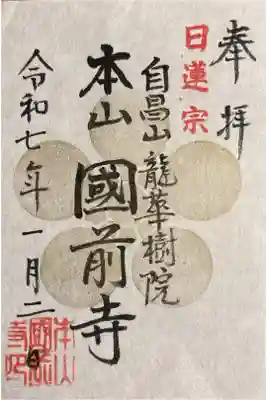 奉拝
日蓮宗
自昌山龍華樹院
本山國前寺
令和七年一月二日
本山
國前
寺印